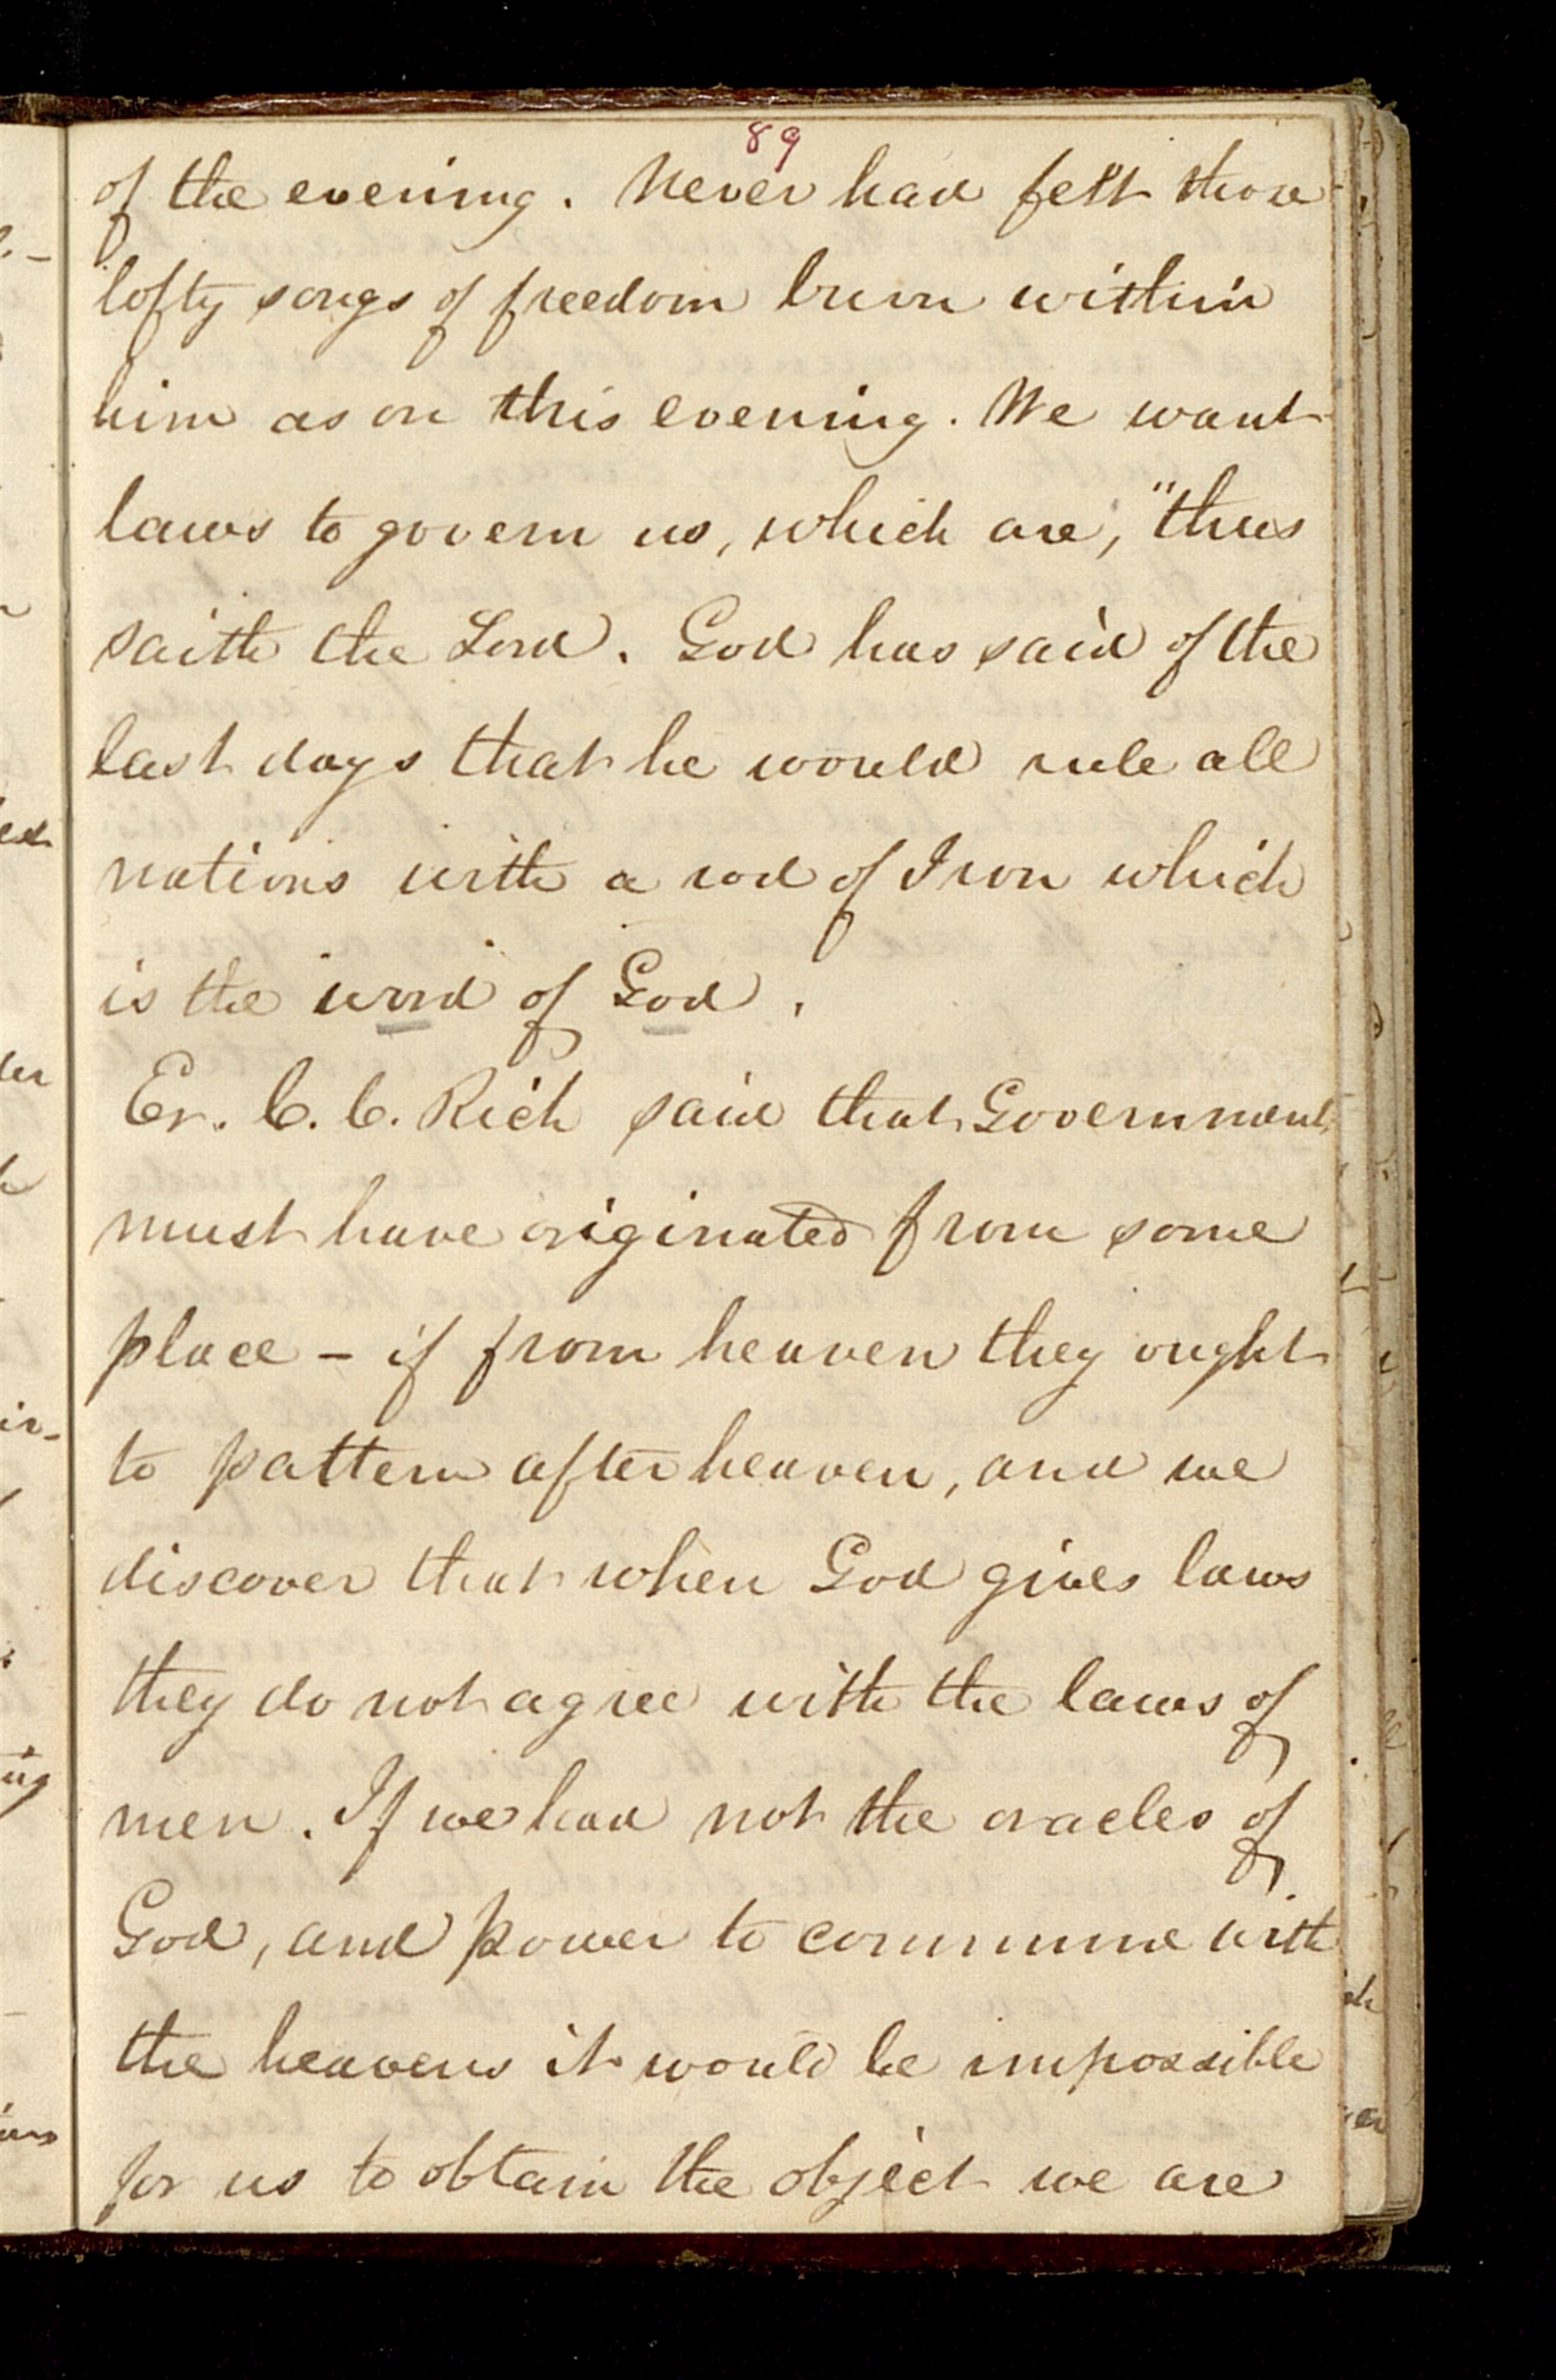 89
of the evening. Never had felt those
lofty songs of freedom burn within
him as on this evening. We want
laws to govern us, which are, "thus
saith the Lord. God has said of the
last days that he would rule all
nations with a rod of Iron which
is the word of God.
Er. C. C. Rich said that Government
must have originated from some
place – if from heaven they ought
to pattern after heaven, and we
discover that when God gives laws
they do not agree with the laws of
men. If we had not the oracles of
God, and power to commune with
the heavens it would be impossible
for us to obtain the object we are